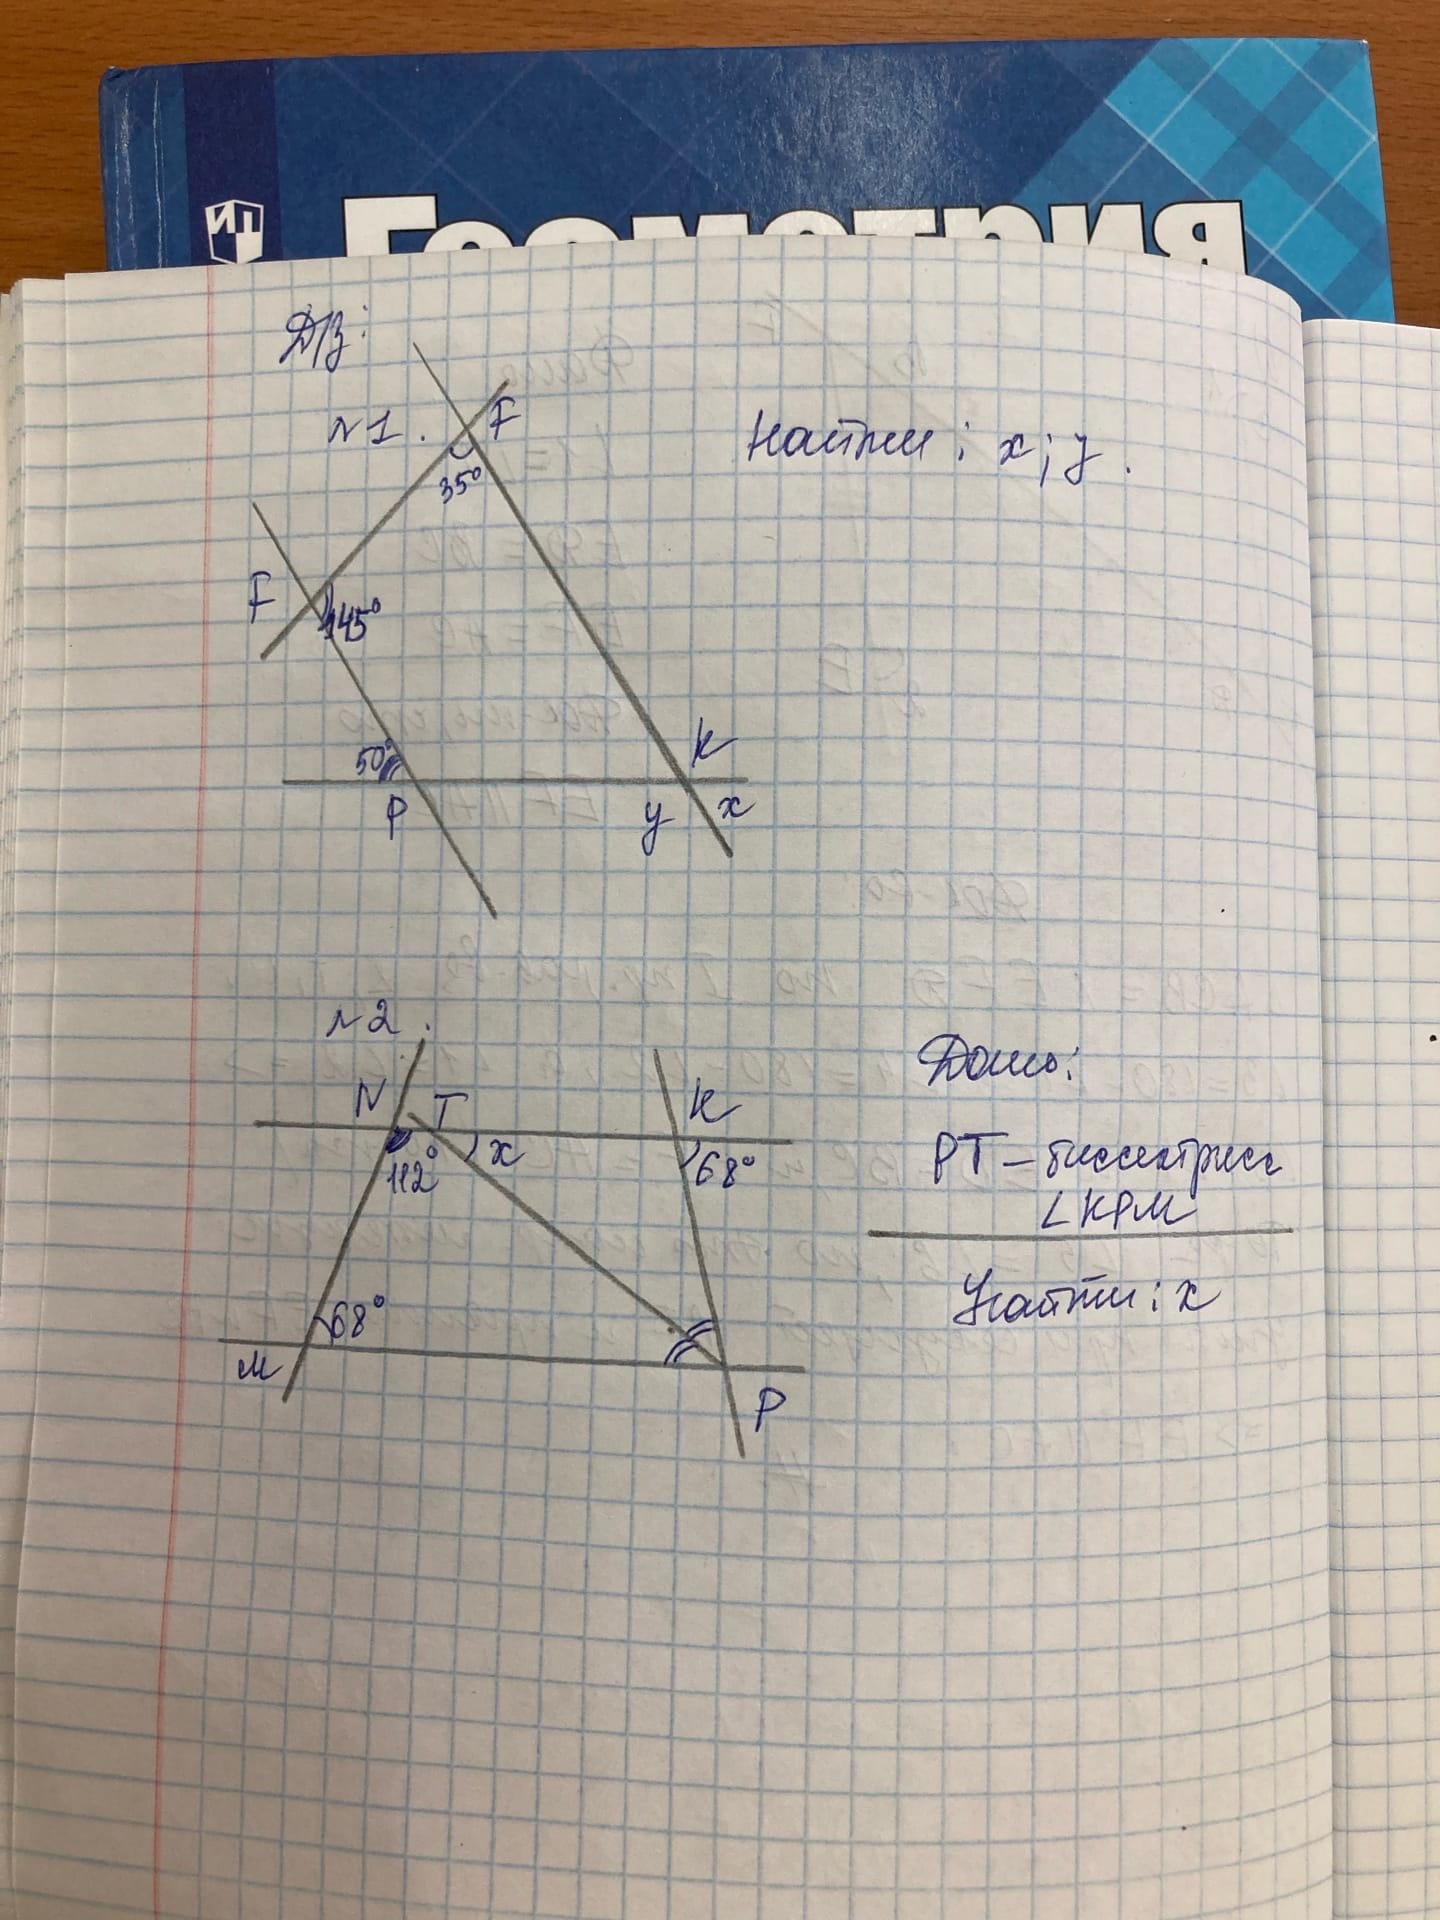 ИП
Геометрия
Д/З:
№1.
F
35°
F
145°
50°
P
K
y
x
Найти: x; y.
№2.
N
T
K
112°
x
68°
68°
M
P
Дано:
PT – биссектриса
∠KPM
Найти: x